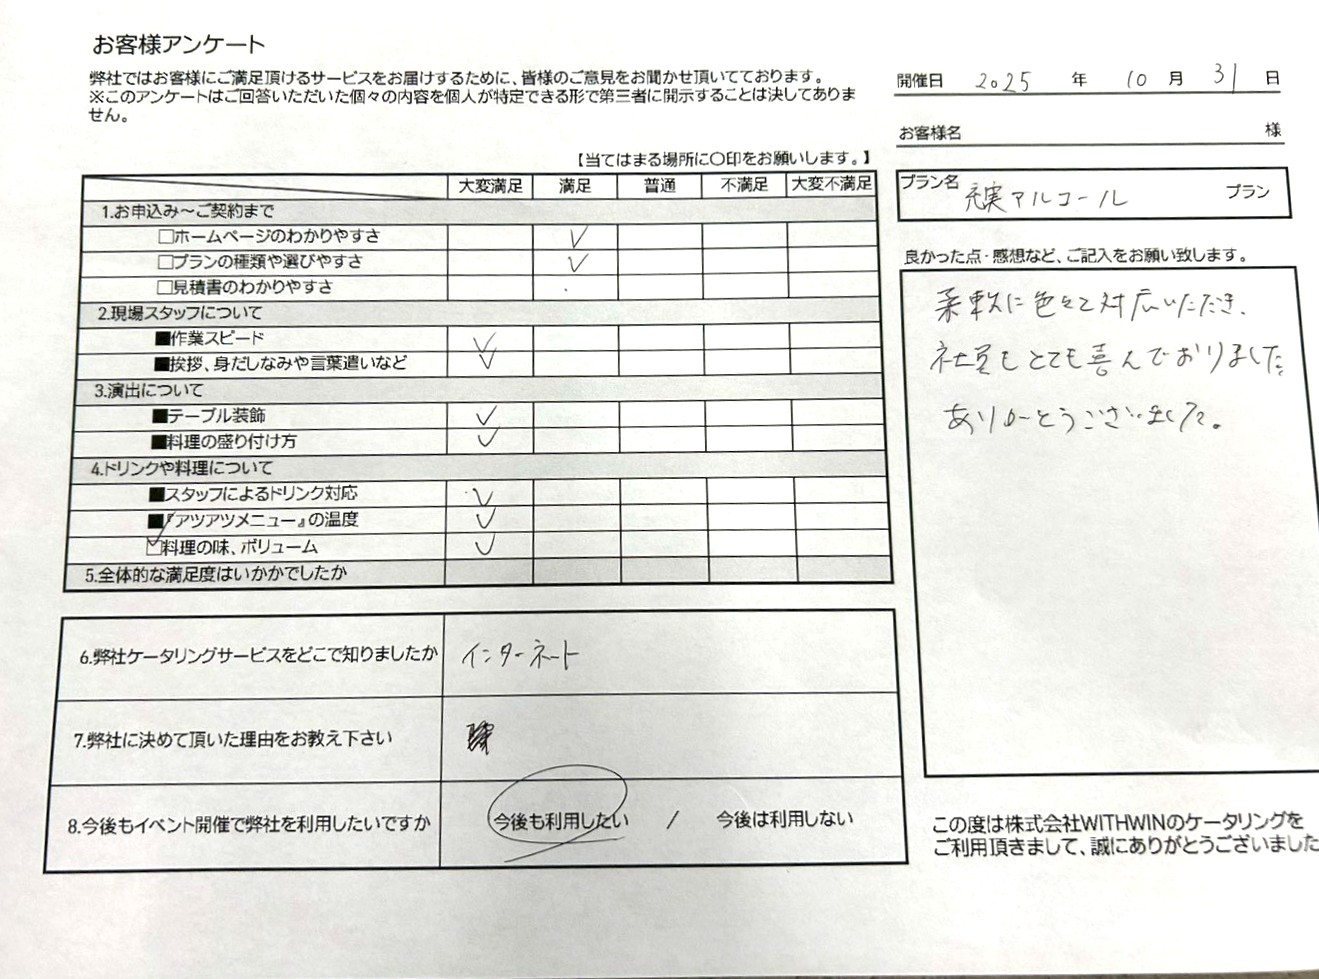 お客様アンケート
弊社ではお客様にご満足頂けるサービスをお届けするために、皆様のご意見をお聞かせ頂いてております。
※このアンケートはご回答いただいた個々の内容を個人が特定できる形で第三者に開示することは決してありま
せん。
開催日 2025 年 10 月 31 日
お客様名 様
【当てはまる場所に〇印をお願いします。】
プラン名 充実アルコール プラン
大変満足 満足 普通 不満足 大変不満足
1.お申込み～ご契約まで
□ホームページのわかりやすさ ✓
□プランの種類や選びやすさ ✓
□見積書のわかりやすさ
2.現場スタッフについて
■作業スピード ✓
■挨拶、身だしなみや言葉遣いなど ✓
3.演出について
■テーブル装飾 ✓
■料理の盛り付け方 ✓
4.ドリンクや料理について
■スタッフによるドリンク対応 ✓
■『アツアツメニュー』の温度 ✓
□料理の味、ボリューム ✓
5.全体的な満足度はいかかでしたか
6.弊社ケータリングサービスをどこで知りましたか インターネート
7.弊社に決めて頂いた理由をお教え下さい
8.今後もイベント開催で弊社を利用したいですか 今後も利用したい / 今後は利用しない
良かった点・感想など、ご記入をお願い致します。
柔軟に色々と対応いただき、
社員もとても喜んでおりました。
ありがとうございました。
この度は株式会社WITHWINのケータリングを
ご利用頂きまして、誠にありがとうございました